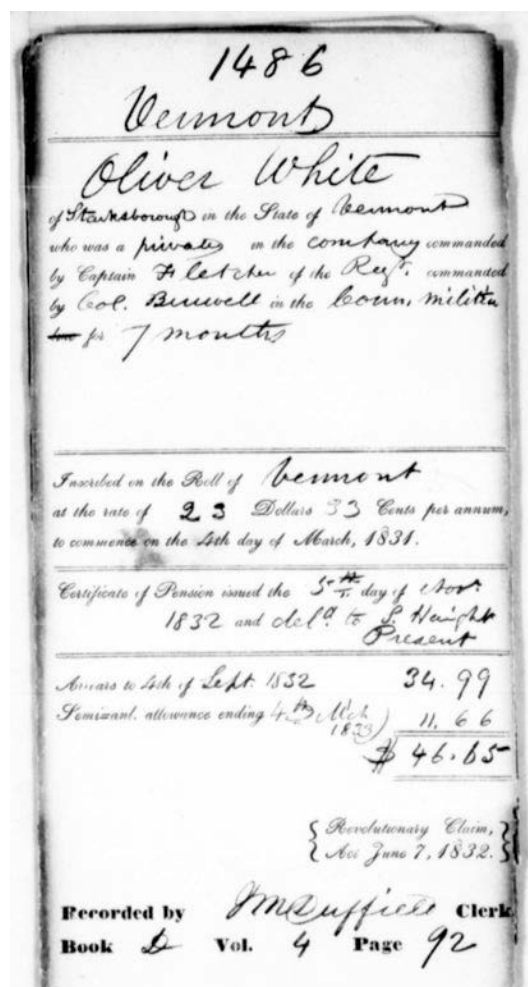 1486
Vermont
Oliver White
of Starksborough in the State of Vermont
who was a private in the company commanded
by Captain Fletcher of the Regt. commanded
by Col. Burwell in the Conn. militia
for 7 months
Inscribed on the Roll of Vermont
at the rate of 23 Dollars 33 Cents per annum,
to commence on the 4th day of March, 1831.
Certificate of Pension issued the 5th day of Novr.
1832 and deld. to S. Haight
Present
Arrears to 4th of Sept. 1832 34.99
Semianl. allowance ending 4th Mch 11.66
1833)
$ 46.65
{Revolutionary Claim,}
{Act June 7, 1832.}
Recorded by Duffield Clerk
Book D Vol. 4 Page 92